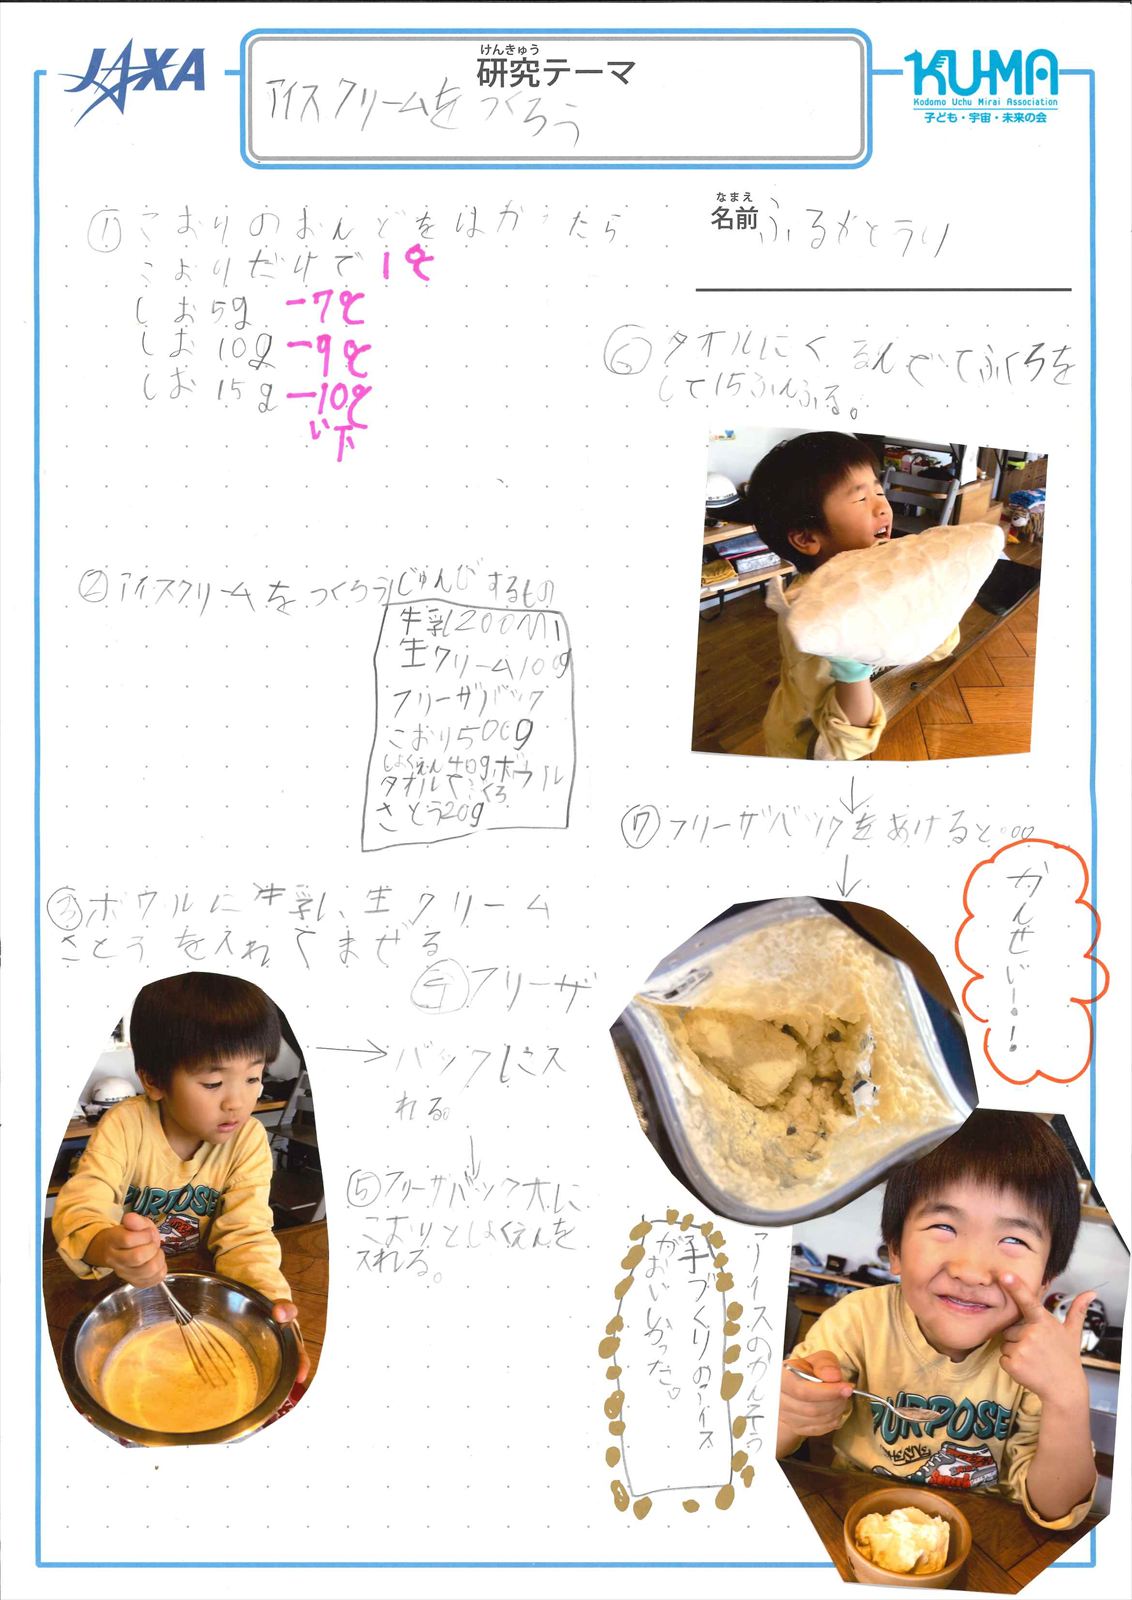 JAXA
けんきゅう
研究テーマ
アイスクリームをつくろう
KU-MA
Kodomo Uchu Mirai Association
子ども・宇宙・未来の会
なまえ
名前
①こおりのおんどをはかったら
こおりだけで 1℃
しお5g -7℃
しお10g -9℃
しお15g -10℃
以下
②アイスクリームをつくろう じゅんびするもの
牛乳200Ml
生クリーム10g
フリーザバック
こおり500g
しょくえん40g ボウル
タオル
ふくろ
さとう20g
③ボウルに牛乳、生クリーム
さとうを入れてまぜる
④フリーザ
バックに入
れる。
⑤フリーザバック大に
こおりとしょくえんを
入れる。
⑥タオルにくるんでてふくろを
して15ふんふる。
⑦フリーザバックをあけると…
かんせい!!
アイスのかんそう
手づくりのアイス
がおいしかった。
PURPOSE
PURPOSE